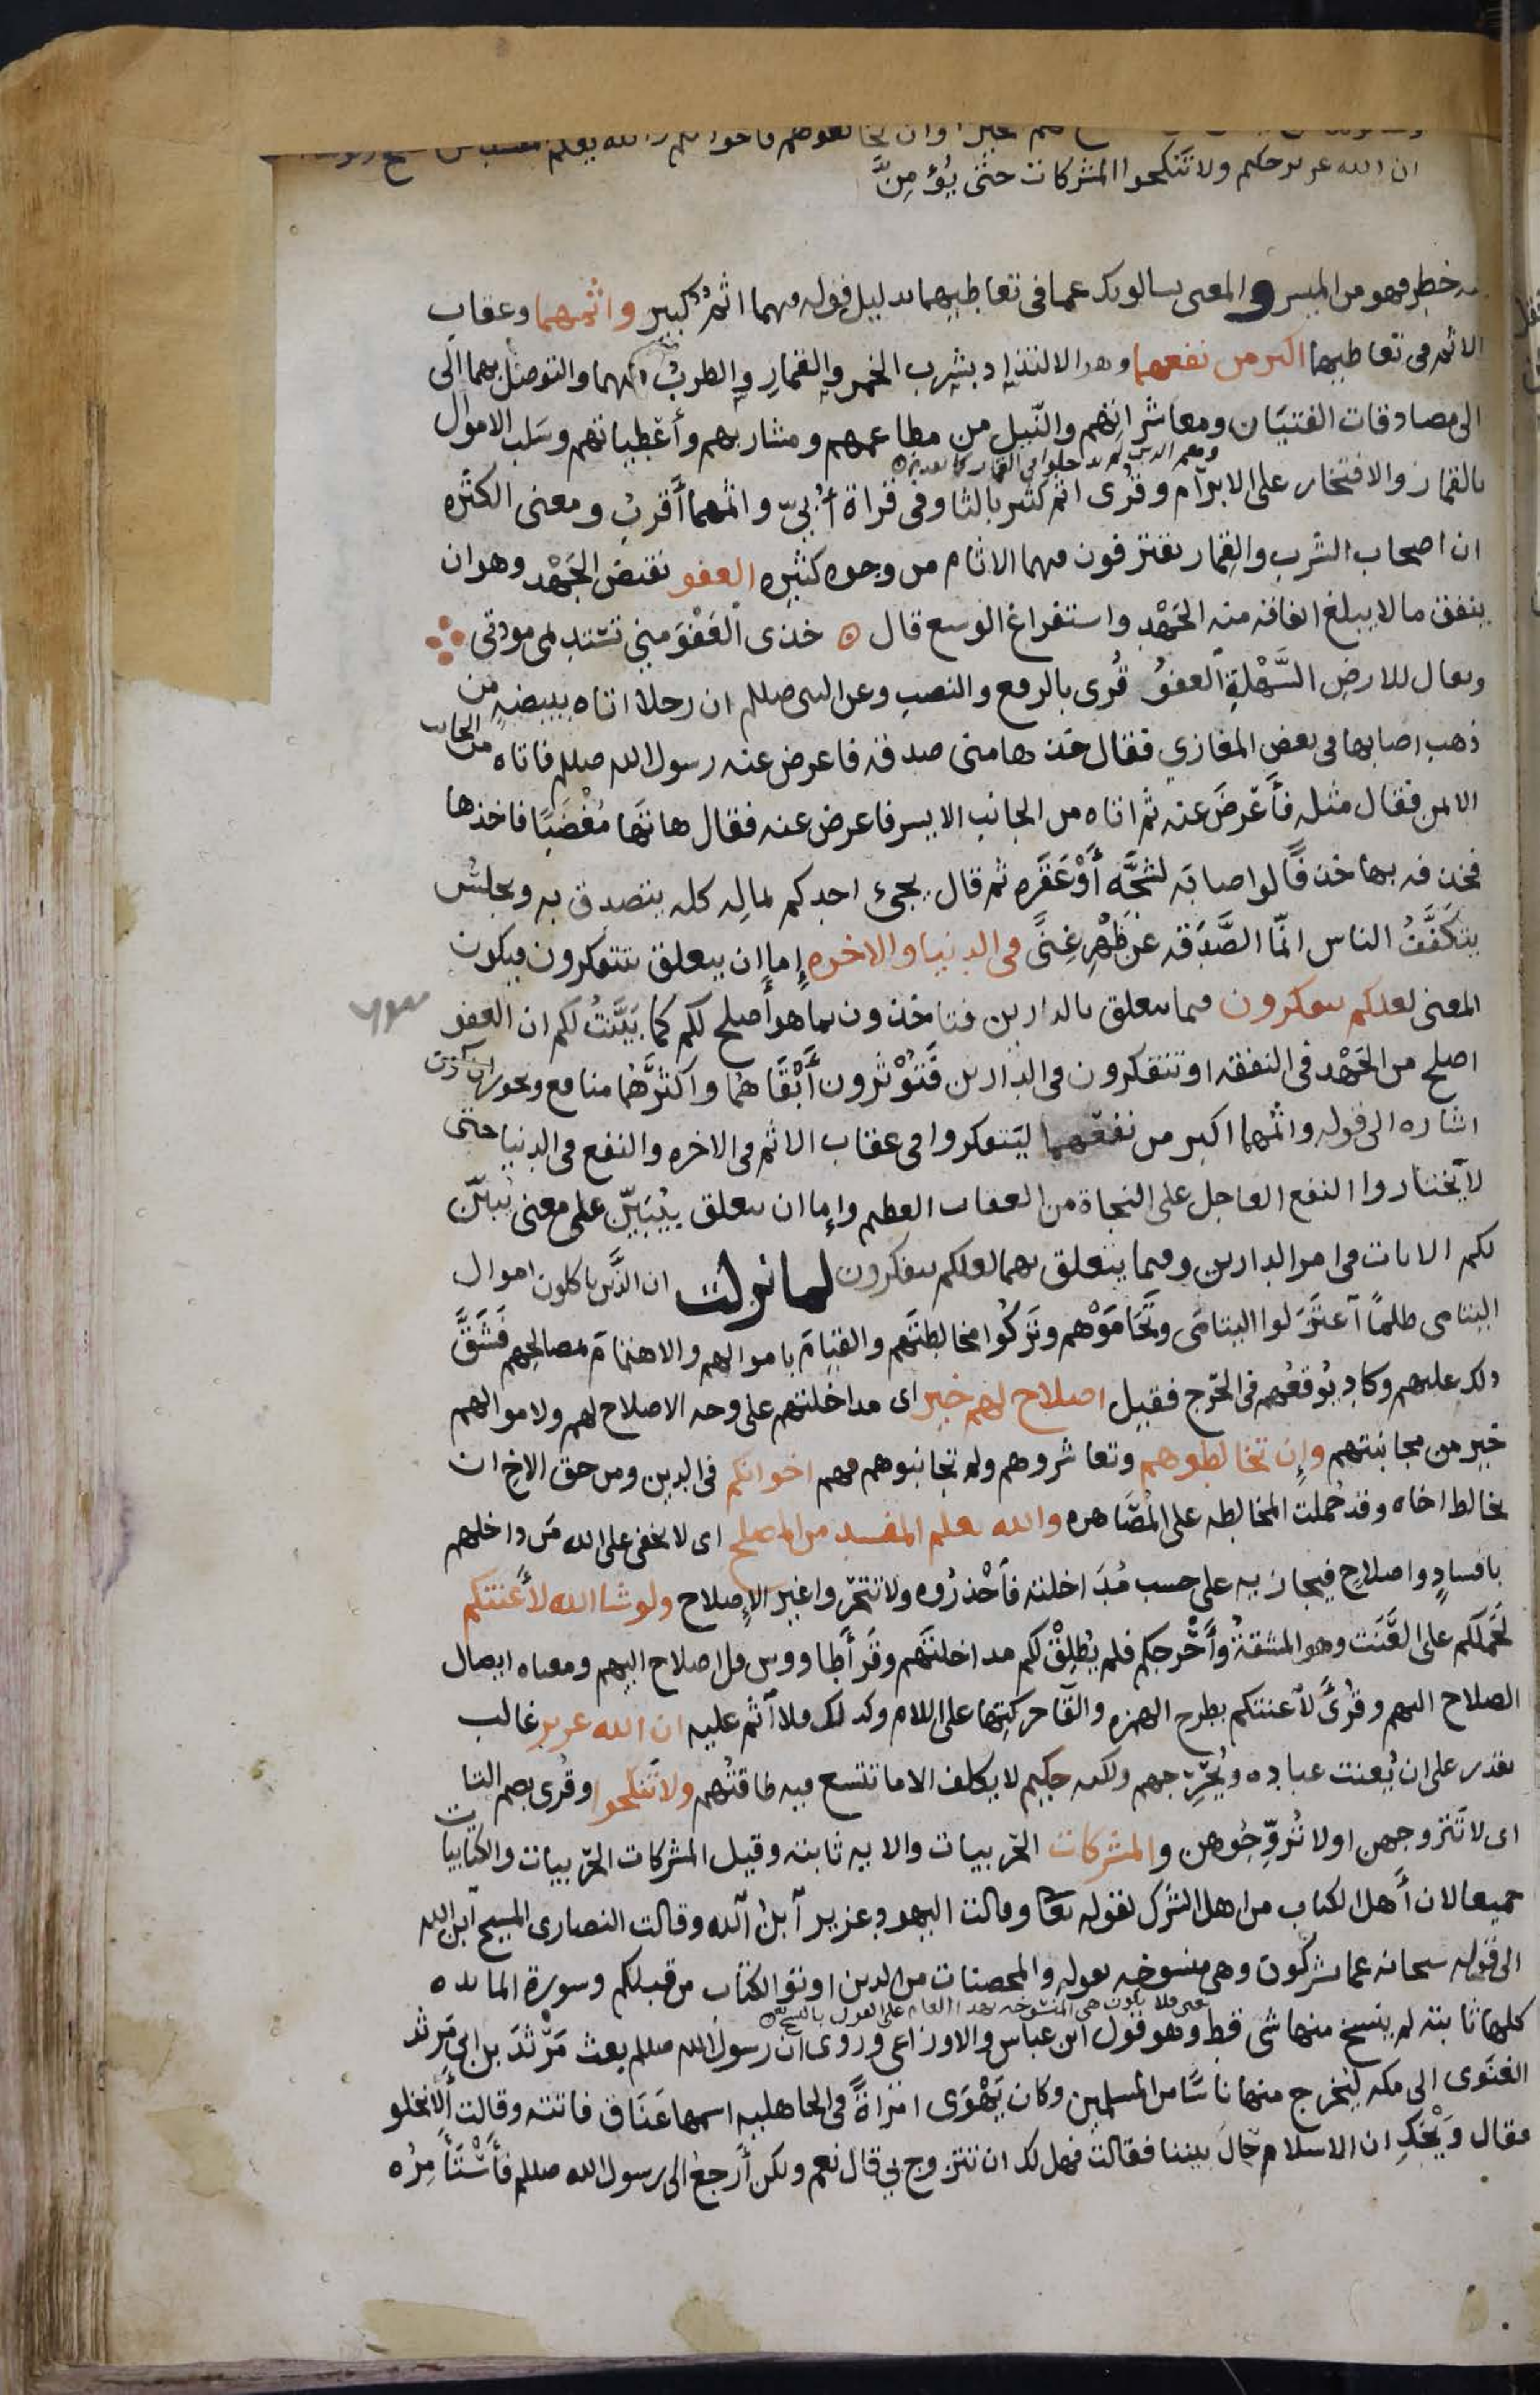 ان الله عزيز حكيم ولا تنكحوا المشركات حتى يُؤمِنَّ
خطر فهو من الميسر والمعنى يسالونك عما فى تعاطيهما بدليل قوله فيهما اثم كبير واثمهما وعقاب
الاثم فى تعاطيهما اكبر من نفعهما وهو الالتذاذ بشرب الخمر والقمار والطرب فيهما والتوصل بهما الى
الى مصادقات الفتيان ومعاشراتهم والنيل من مطاعمهم ومشاربهم وأعطياتهم وسلب الاموال
بالقمار والافتخار على الابرام وقرى اثم كثير بالثا وفى قراة أُبىّ واثمهما أقرب ومعنى الكثره
ان اصحاب الشرب والقمار يقترفون فيهما الاثام من وجوه كثيره العفو نقيض الجَهْد وهو ان
ينفق ما لا يبلغ انفاقه منه الجَهْد واستفراغ الوسع قال خذى العَفْوَ منى تستديمى مودتى
ويقال للارض السَّهْلة العفوُ قُرى بالرفع والنصب وعن النبى صللم ان رجلا اتاه ببيضةٍ من
ذهب اصابها فى بعض المغازي فقال خذها منى صدقه فاعرض عنه رسول الله صللم فاتاه من الجانب
الايمن فقال مثله فأَعْرضَ عنه ثم اتاه من الجانب الايسر فاعرض عنه فقال هاتها مُغْضَبًا فاخذها
فخذفه بها خذفًا لو اصابَه لشجَّه أَوْعَقَره ثم قال يجىء احدكم بماله كله يتصدق به ويجلسُ
يتكفَّفُ الناس انّما الصَّدَقه عن ظَهْرِ غِنًى فى الدنيا والاخره إما ان يتعلق بتتفكرون فيكون
المعنى لعلكم تتفكرون فيما يتعلق بالدارين فتاخذون بما هو أصلح لكم كما بَيَّنْتُ لكم ان العفو
اصلح من الجَهْد فى النفقه او تتفكرون فى الدارين فَتُؤْثرون أَبْقَاهُما واكثَرَهُما منافع ويجوز ان يكون
اشاره الى قوله واثمهما اكبر من نفعهما ليتفكروا فى عقاب الاثم فى الاخره والنفع فى الدنيا حتى
لا يختاروا النفع العاجل على النجاة من العقاب العظيم وإما ان يتعلق بيُبَيّن على معنى يُبَيّن
لكم الايات فى امر الدارين وفيما يتعلق بهما لعلكم تتفكرون لما نزلت ان الذين ياكلون اموال
اليتامى ظلمًا اعتزَلوا اليتامَى وتَحَامَوْهم وتَرَكُوا مخالطتَهم والقيامَ باموالهم والاهتمامَ بمصالحهم فَشَقَّ
ذلك عليهم وكاد يُوقعُهم فى الحَرج فقيل اصلاح لهم خير اى مداخلتهم على وجه الاصلاح لهم ولاموالهم
خير من مجانبتهم وإن تخالطوهم وتعاشروهم ولم تجانبوهم فهم اخوانكم فى الدين ومن حق الاخ ان
يخالط اخاه وقد حُملت المخالطه على المُصَاهره والله يعلم المفسد من المصلح اى لا يخفى على الله مَن داخلهم
بافسادٍ واصلاحٍ فيجازيه على حسب مُدَاخلته فاحْذرُوه ولا تتحَرّوا غير الإصلاح ولو شا الله لأَعنتكم
لحَملكم على العَنَت وهو المشقةُ وأَحْرجكم فلم يُطْلِقْ لكم مداخلتَهم وقرأ طاووس قل اصلاح اليهم ومعناه ايصال
الصلاح اليهم وقُرىَ لَاعنتكم بطرح الهمزه والقآ حركتِها على اللام وكذلك فلا اثم عليه ان الله عزيز غالب
يقدر على ان يُعنت عباده ويُحْرِجهم ولكنه حكيم لا يكلف الا ما تتسع فيه طاقتُهم ولا تَنكحوا وقُرى بضم التا
اى لا تَتزوجهن او لا تُزوِّجُوهن والمشركات الحَربيات والايه ثابته وقيل المشركات الحَربيات والكتابيات
جميعا لان أَهل الكتاب من اهل الشرك لقوله تعا وقالت اليهود عزير ابن الله وقالت النصارى المسيح ابن الله
الى قوله سبحانه عما يشركون وهى منسوخه بقوله والمحصنات من الذين اوتو الكتاب من قبلكم وسورة المائده
كلها ثابته لم ينسخ منها شى قط وهو قول ابن عباس والاوزاعى وروى ان رسول الله صللم بعث مَرْثدَ بن ابى مَرثد
الغنَوى الى مكه ليُخرج منها ناسًا من المسلمين وكان يَهْوَى امراةً فى الجاهليه اسمها عَنَاق فاتته وقالت أَلا نخلو
فقال وَيْحَكِ ان الاسلام حال بيننا فقالت فهل لك ان تتزوج بى قال نعم ولكن أَرجعُ الى رسول الله صللم فأَسْتَأْمِرُه